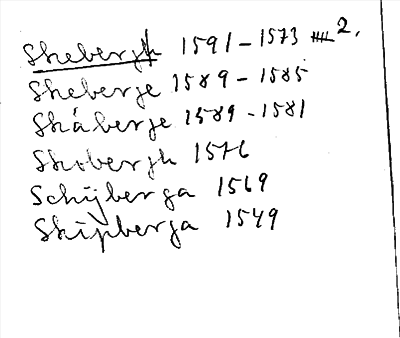 Skebergh 1591-1573 2.
Skeberge 1589-1585
Skåberge 1589-1581
Skobergh 1576
Schijberga 1569
Skijpberga 1549